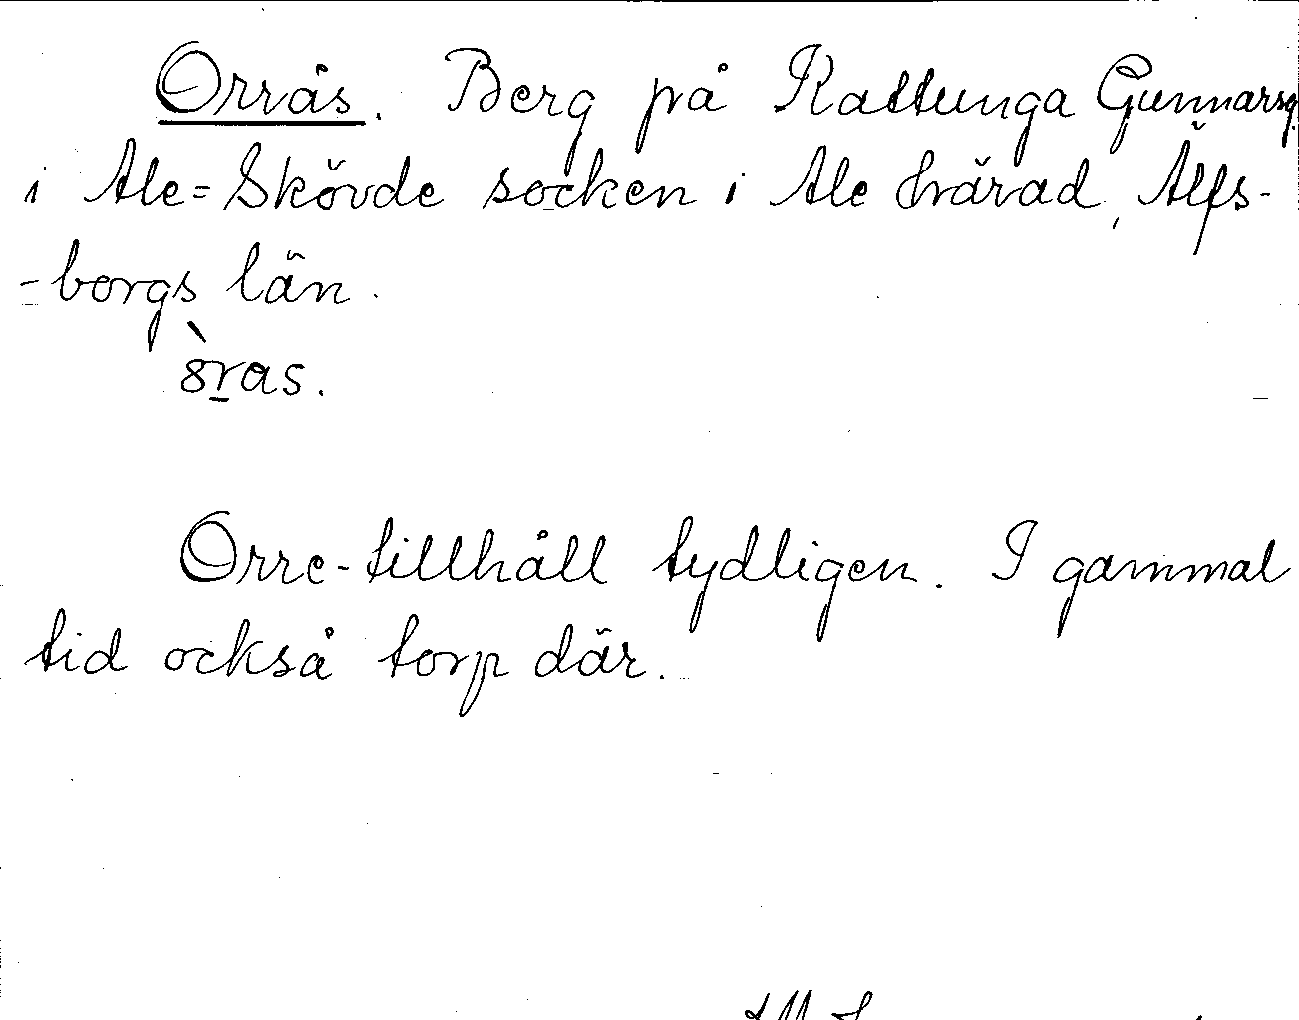 Orrås. Berg på Kattunga Gunnarsg.
i Ale=Skövde socken i Ale härad, Älfs-
-borgs län.
òras.
Orre-tillhåll tydligen. I gammal
tid också torp där.